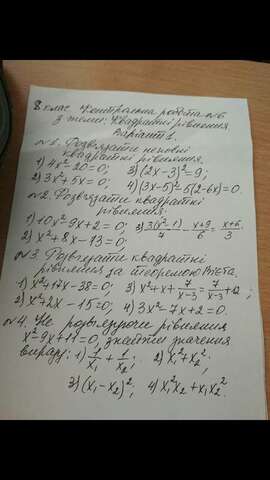 8 клас Контрольна робота №6
з теми: Квадратні рівняння
Варіант 1.
№1. Розв'язати неповні
квадратні рівняння.
1) 4x²-20=0; 3) (2x-3)²=9;
2) 3x²+5x=0; 4) (3x-5)²-5(2-6x)=0.
№2. Розв'язати квадратні
рівняння:
1) 10x²-9x+2=0; 3) 3(x²-1)/7 - (x+9)/6 = (x+6)/3
2) x²+8x-13=0;
№3 Розв'язати квадратні
рівняння за теоремою Вієта.
1) x²+17x-38=0; 3) x²+x+7/(x-3)=7/(x-3)+12;
2) x²+2x-15=0; 4) 3x²-7x+2=0.
№4. Не розв'язуючи рівняння
x²-9x+11=0, знайти значення
виразу: 1) 1/x₁+1/x₂; 2) x₁²+x₂²;
3) (x₁-x₂)²; 4) x₁²x₂+x₁x₂².